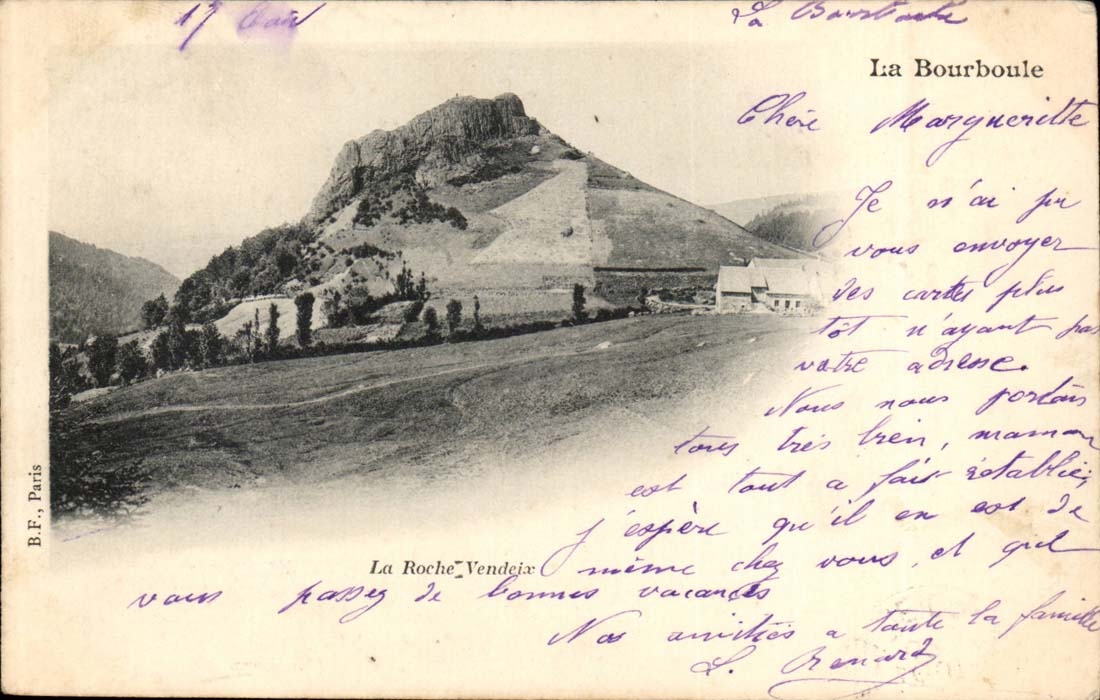 17
La Bourboule
La Bourboule
Chère Marguerite
Je n'ai pu
vous envoyer
des cartes plus
tôt n'ayant pas
votre adresse.
Nous nous portons
tous très bien, maman
est tout a fait rétablie,
j'espère qu'il en est de
La Roche Vendeix
même chez vous, et que
vous passez de bonnes vacances
Nos amitiés a toute la famille
L. Renard
B.F., Paris